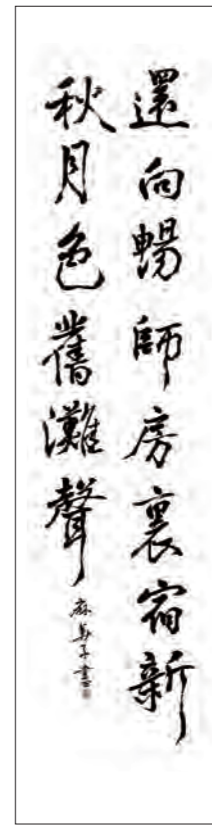 還向暢師房裏宿新
秋月色舊灘聲
麻美子書